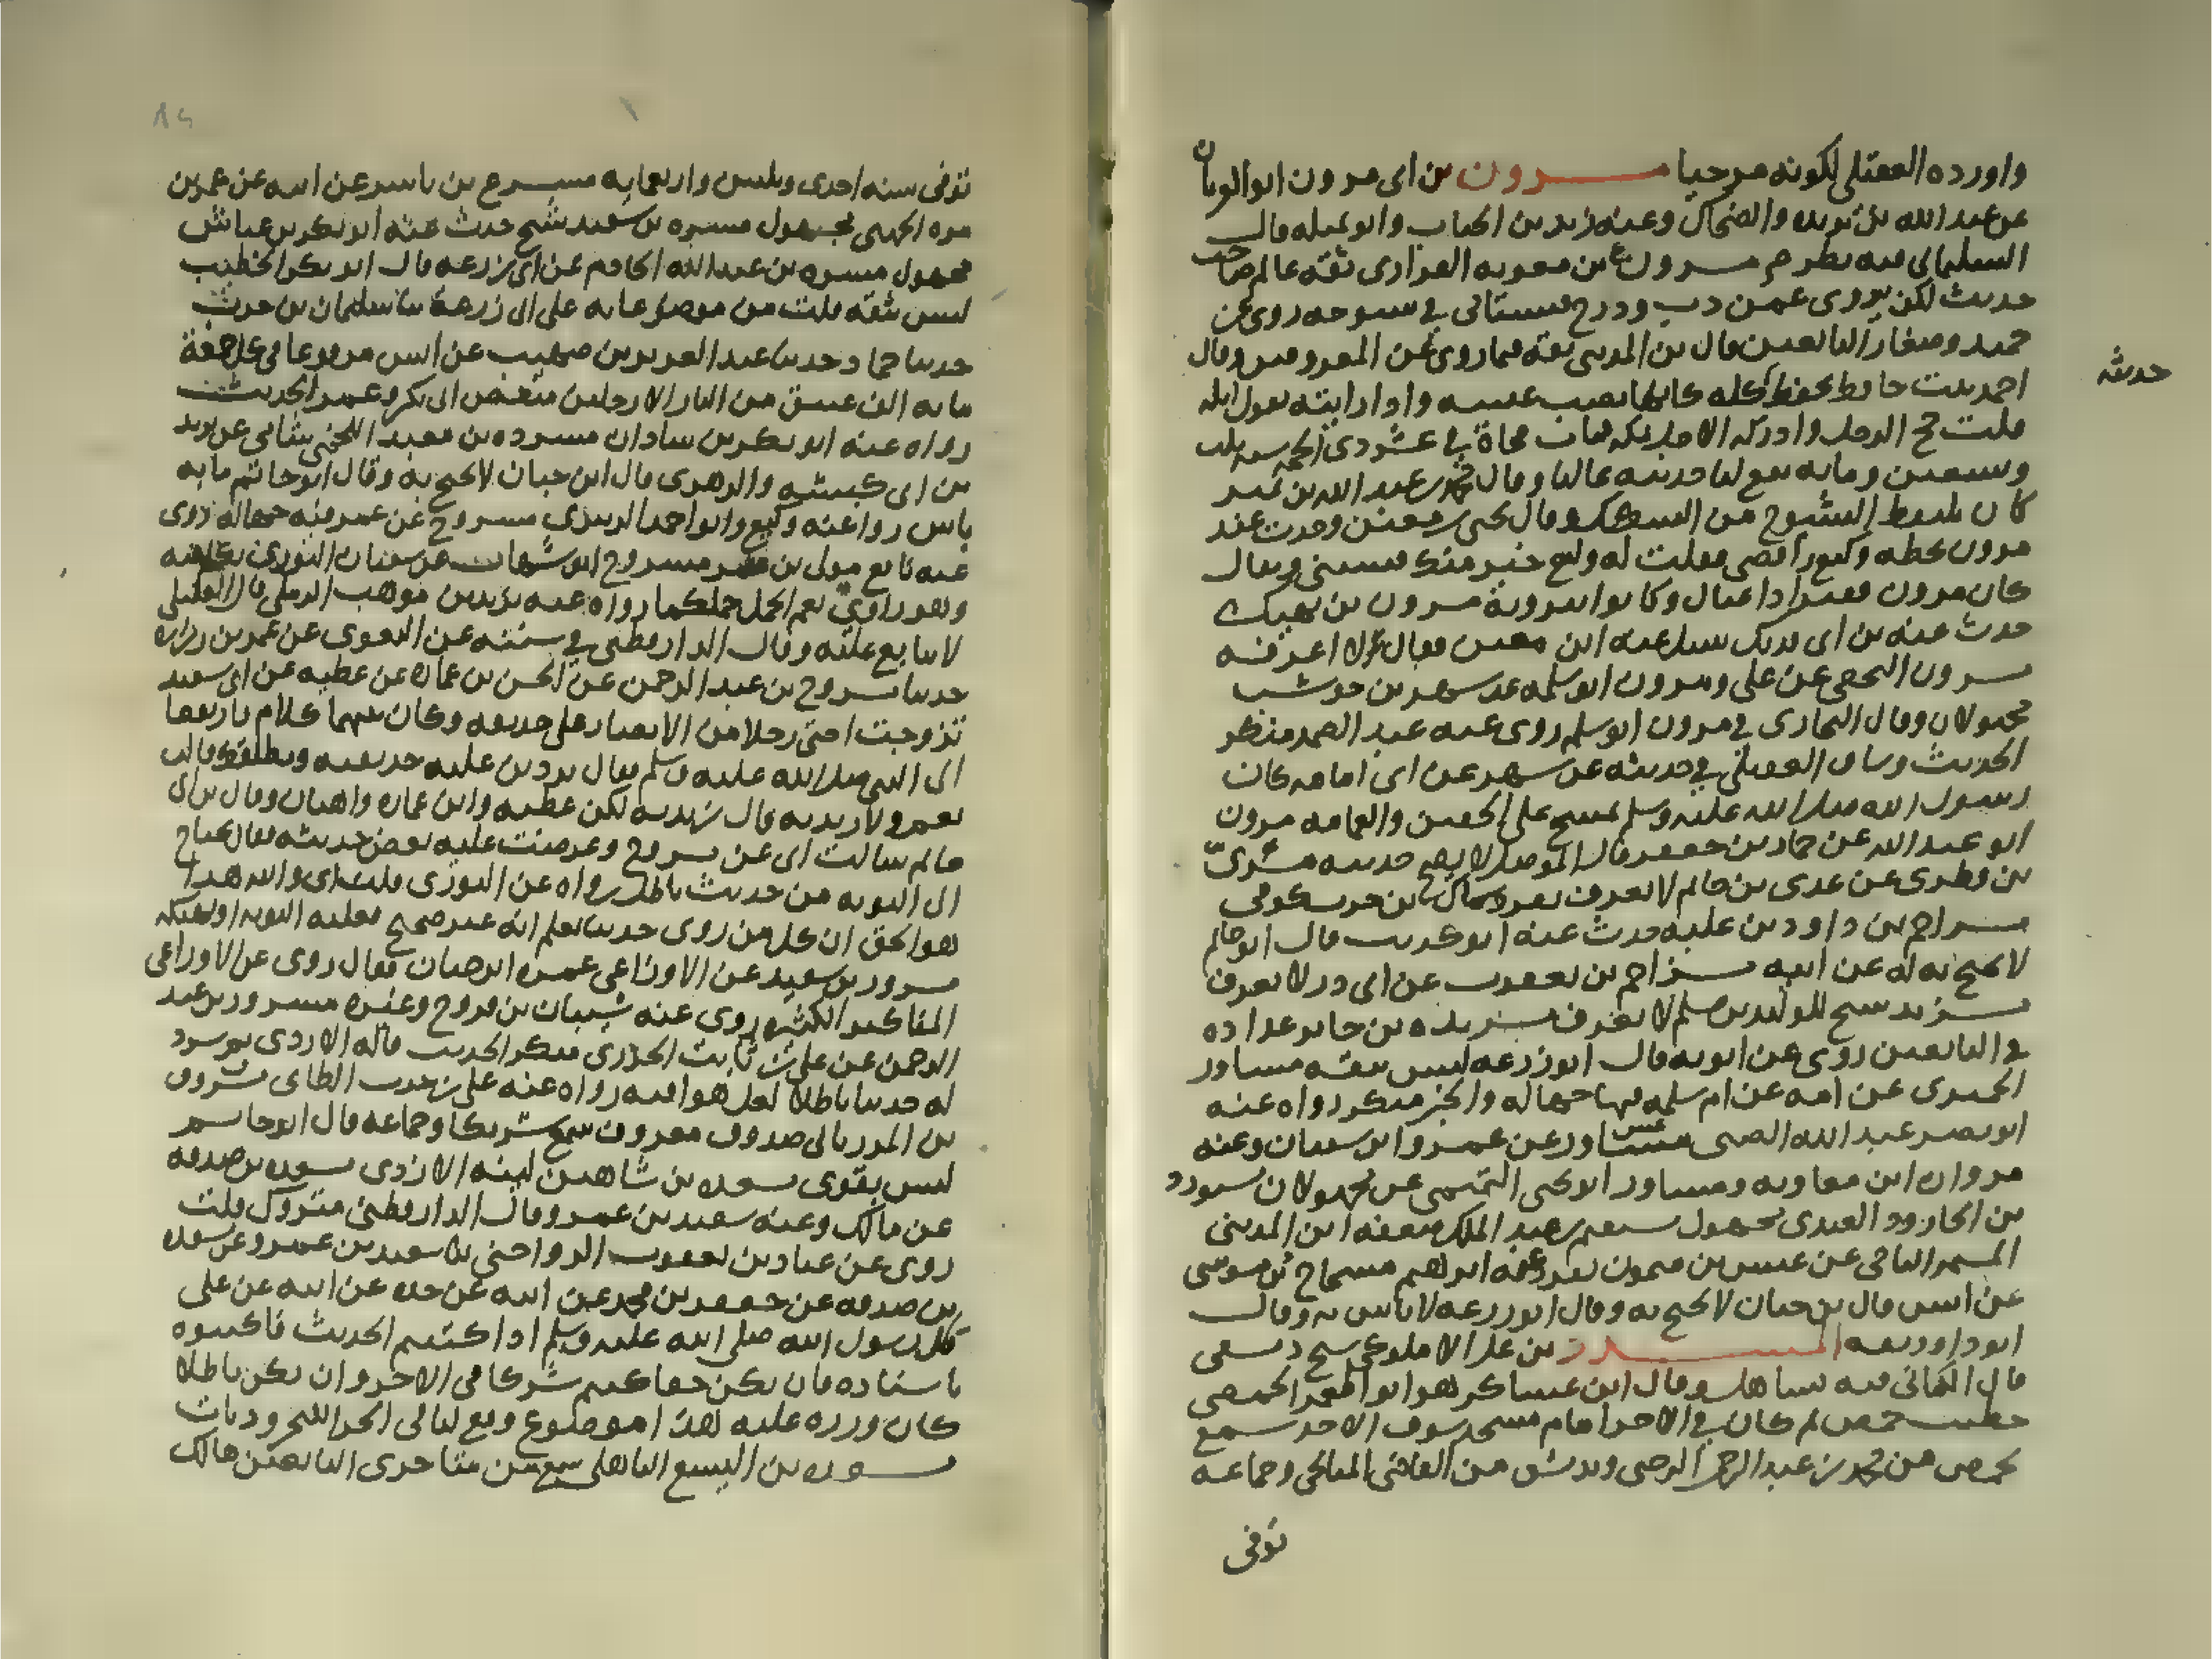 واورده العقيلي لكونه مرجيا مروان بن ابي مروان ابو العريان
عن عبد الله بن بريده والضحاك وعنه زيد بن الحباب وابو تميله قال
السليماني فيه نظر م مروان ع بن معويه الفزاري ثقه عالم صاحب
حديث لكن يروي عمن دب ودرج فيستاني في شيوخه روى عن
حميد وصغار التابعين قال بن المديني ثقه فيما روى عن المعروفين وقال
احمد ثبت حافظ يحفظ حديثه كله كانها نصب عينيه واذا رايته تقول ابله
قلت حج الرجل وادركه الاجل بمكه فمات فجاة في عشر ذي الحجه سنه ثلث
وتسعين ومايه يقع لنا حديثه عاليا وقال محمد بن عبد الله بن نمير
كان يلتقط الشيوخ من السكك وقال يحيى بن معين وجدت عند
مروان بخطه وكيع رافضي فقلت له وكيع خير منك فسبني ويقال
كان مروان فقيرا ذا عيال وكانوا يبرونه مروان بن نهيك
حدث عنه بن ابي فديك سئل عنه ابن معين فقال لا اعرفه
مروان النخعي عن علي ومروان ابو سلمه عن شهر بن حوشب
مجهولان وقال البخاري في مروان ابو سلمه روى عنه عبد الصمد منكر
الحديث وساق العقيلي في حديثه عن شهر عن ابي امامه كان
رسول الله صلى الله عليه وسلم يمسح على الخفين والعمامه مروان
ابو عبد الله عن حماد بن جعفر قال الموصلي لا يصح حديثه مري
بن قطري عن عدي بن حاتم لا يعرف تفرد سماك بن حرب كوفي
مزاحم بن داود بن علبه حدث عنه ابو كريب قال ابو حاتم
لا يحتج به له عن ابيه مزاحم بن يعقوب عن ابي ذر لا يعرف
مزيد شيخ للوليد بن مسلم لا يعرف مزيده بن جابر عداده
في التابعين روى عن ابويه قال ابو زرعه ليس بثقه مساور
الحميري عن امه عن ام سلمه فيها جهاله والخبر منكر رواه عنه
ابو نصر عبد الله الضبي مساور عن عمرو بن سفيان وعنه
مروان ابن معاويه ومساور ابو يحيى التميمي عن مجهولان
بن الجارود العبدي مجهول عبد الملك ضعفه ابن المديني
الباجي عن عيسى بن ميمون تفرد عنه ابراهيم مسحاج بن موسى
عن انس قال بن حبان لا يحتج به وقال ابو زرعه لا باس به وقال
ابو داود ثقه المسدد بن علي الاملوكي شيخ دمشقي
قال الكتاني فيه تساهل وقال ابن عساكر هو ابو المعمر الحمصي
خطيب حمص ثم كان في الاخر امام مسجد سوق الاحد سمع
بحمص من محمد بن عبد الرحمن الرحبي وبدمشق من القاضي الميانجي وجماعه
توفي
حديثه
توفي سنه احدى وثلثين واربعمايه مسرع بن ياسر عن ابيه عن عمرو بن
مره الجهني مجهول مسره بن سعيد شيخ حدث عنه ابو بكر بن عياش
مجهول مسره بن عبد الله الخادم عن ابي زرعه قال ابو بكر الخطيب
ليس بثقه قلت من موضوعاته على ابي زرعة ثنا سليمان بن حرب
حدثنا حماد حدثنا عبد العزيز بن صهيب عن انس مرفوعا في كل جمعة
مايه الف عتيق من النار الا رجلين مبغض ابي بكر وعمر الحديث
رواه عنه ابو بكر بن شاذان مسره بن معبد اللخمي شامي عن يزيد
بن ابي كبشه والزهري قال ابن حبان لا يحتج به وقال ابو حاتم ما به
باس روا عنه وكيع وابو احمد الزبيري مسروح عن عمر فيه جهاله روى
عنه نافع مولى بن عمر مسروح ابو شهاب عن سفيان الثوري تكلم فيه
وهو راوي نعم الجمل جملكما رواه عنه يزيد بن موهب الرملي قال العقيلي
لا يتابع عليه وقال الدارقطني في سننه عن البغوي عن عمرو بن زراره
حدثنا مسروح بن عبد الرحمن عن الحسن بن عماره عن عطيه عن ابي سعيد
تزوجت اختي رجلا من الانصار على حديقه وكان بينهما كلام فارتفعا
الى النبي صلى الله عليه وسلم فقال تردين عليه حديقته ويطلقك قالت
نعم ولازيدنه قال زيديه لكن عطيه وابن عماره واهيان وقال بن ابي
حاتم سالت ابي عن مسروح وعرضت عليه بعض حديثه فقال يحتاج
الى التوبه من حديث باطل رواه عن الثوري قلت اي والله هذا
هو الحق ان كل من روى حديثا يعلم انه غير صحيح فعليه التوبه او يهتكه
مسرور بن سعيد عن الاوزاعي غمزه ابن حبان فقال روى عن الاوزاعي
المناكير الكثيره روى عنه شيبان بن فروخ وغيره مسرور بن عبد
الرحمن عن علي بن ثابت الجزري منكر الحديث قاله الازدي ثم سرد
له حديثا باطلا لعل هو افته رواه عنه علي بن حرب الطائي مسروق
بن المرزبان صدوق معروف سمع شريكا وجماعه قال ابو حاتم
ليس بقوي مسعده بن شاهين لينه الازدي مسعده بن صدقه
عن مالك وعنه سعيد بن عمرو قال الدارقطني متروك قلت
روى عن عباد بن يعقوب الرواجني ثنا سعيد بن عمرو عن مسعده
بن صدقه عن جعفر بن محمد عن ابيه عن جده عن ابيه عن علي
قال رسول الله صلى الله عليه وسلم اذا كتبتم الحديث فاكتبوه
باسناده فان يكن حقا كنتم شركا في الاجر وان يكن باطلا
كان وزره عليه هذا موضوع وقع لنا في الجزا البحروديات
مسعده بن اليسع الباهلي سمع من متاخري التابعين هالك